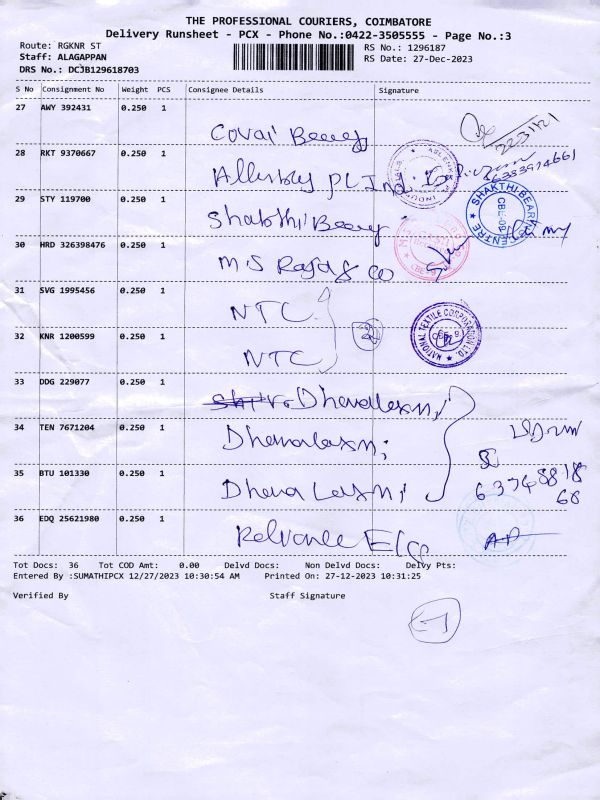 THE PROFESSIONAL COURIERS, COIMBATORE
Delivery Runsheet - PCX - Phone No.:0422-3505555 - Page No.:3
Route: RGKNR ST
RS No.: 1296187
Staff: ALAGAPPAN
RS Date: 27-Dec-2023
DRS No.: DCJB129618703
S No Consignment No Weight PCS Consignee Details Signature
27 AWY 392431 0.250 1
Covai
28 RKT 9370667 0.250 1
29 STY 119700 0.250 1
Shakthi
SHAKTHI BEARING CENTRE
30 HRD 326398476 0.250 1
M.S Raja & Co
31 SVG 1995456 0.250 1
NTC
32 KNR 1200599 0.250 1
NTC
2
NATIONAL TEXTILE CORPORATION LTD.
33 DDG 229077 0.250 1
Dhanalaxmi
34 TEN 7671204 0.250 1
Dhanalaxmi
35 BTU 101330 0.250 1
Dhana Laxmi
63748818
68
36 EDQ 25621980 0.250 1
Relvance
Tot Docs: 36 Tot COD Amt: 0.00 Delvd Docs: Non Delvd Docs: Delvy Pts:
Entered By :SUMATHIPCX 12/27/2023 10:30:54 AM Printed On: 27-12-2023 10:31:25
Verified By Staff Signature